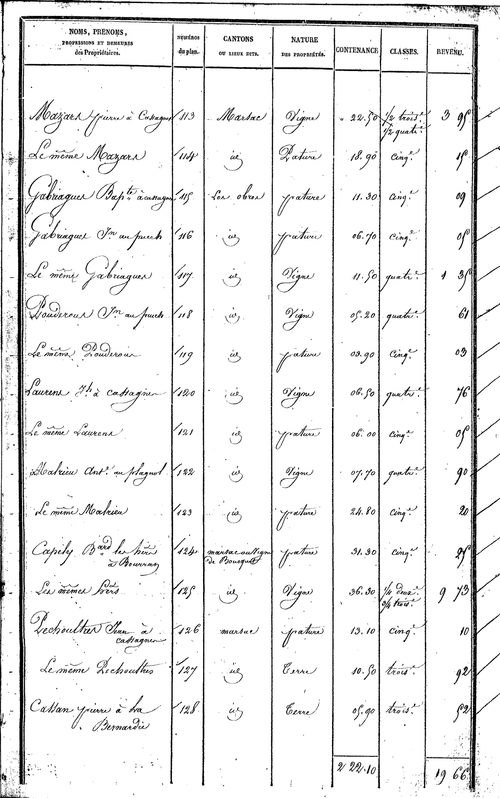 NOMS, PRÉNOMS, PROFESSIONS ET DEMEURES des Propriétaires. NUMÉROS du plan. CANTONS OU LIEUX DITS. NATURE DES PROPRIÉTÉS. CONTENANCE CLASSES. REVENU.
Mazars pierre à Cassagnes 113 Marsac Vigne 22.50 1/2 trois.e 3 95
1/2 quatr.e
Le même Mazars 114 id Pature 18.90 cinq.e 15
Gabriagues Bap.te à cassagnes 115 Les obres pature 11.30 cinq.e 09
Gabriagues au puech 116 id pature 06.70 cinq.e 05
Le même Gabriagues 117 id Vigne 11.50 quatr.e 1 35
Pouderous au puech 118 id Vigne 05.20 quatr.e 61
Le même Pouderous 119 id pature 03.90 cinq.e 03
Laurens à cassagnes 120 id Vigne 06.50 quatr.e 76
Le même Laurens 121 id pature 06.00 cinq.e 05
Malrieu Ant.e au plagnol 122 id Vigne 07.70 quatr.e 90
Le même Malrieu 123 id pature 24.80 cinq.e 20
Capely B.ard les hérs 124 marsac ou Vigne pature 31.30 cinq.e 25
à Bournan de Bousquet
Les mêmes hérs 125 id Vigne 36.30 1/4 deux.e 9 73
3/4 trois.e
Dechoultres Jean à 126 marsac pature 13.10 cinq.e 10
cassagnes
Le même Dechoultres 127 id Terre 10.50 trois.e 92
Cassan pierre à La 128 id Terre 05.90 trois.e 52
Bernardie
2 22.10 19 66